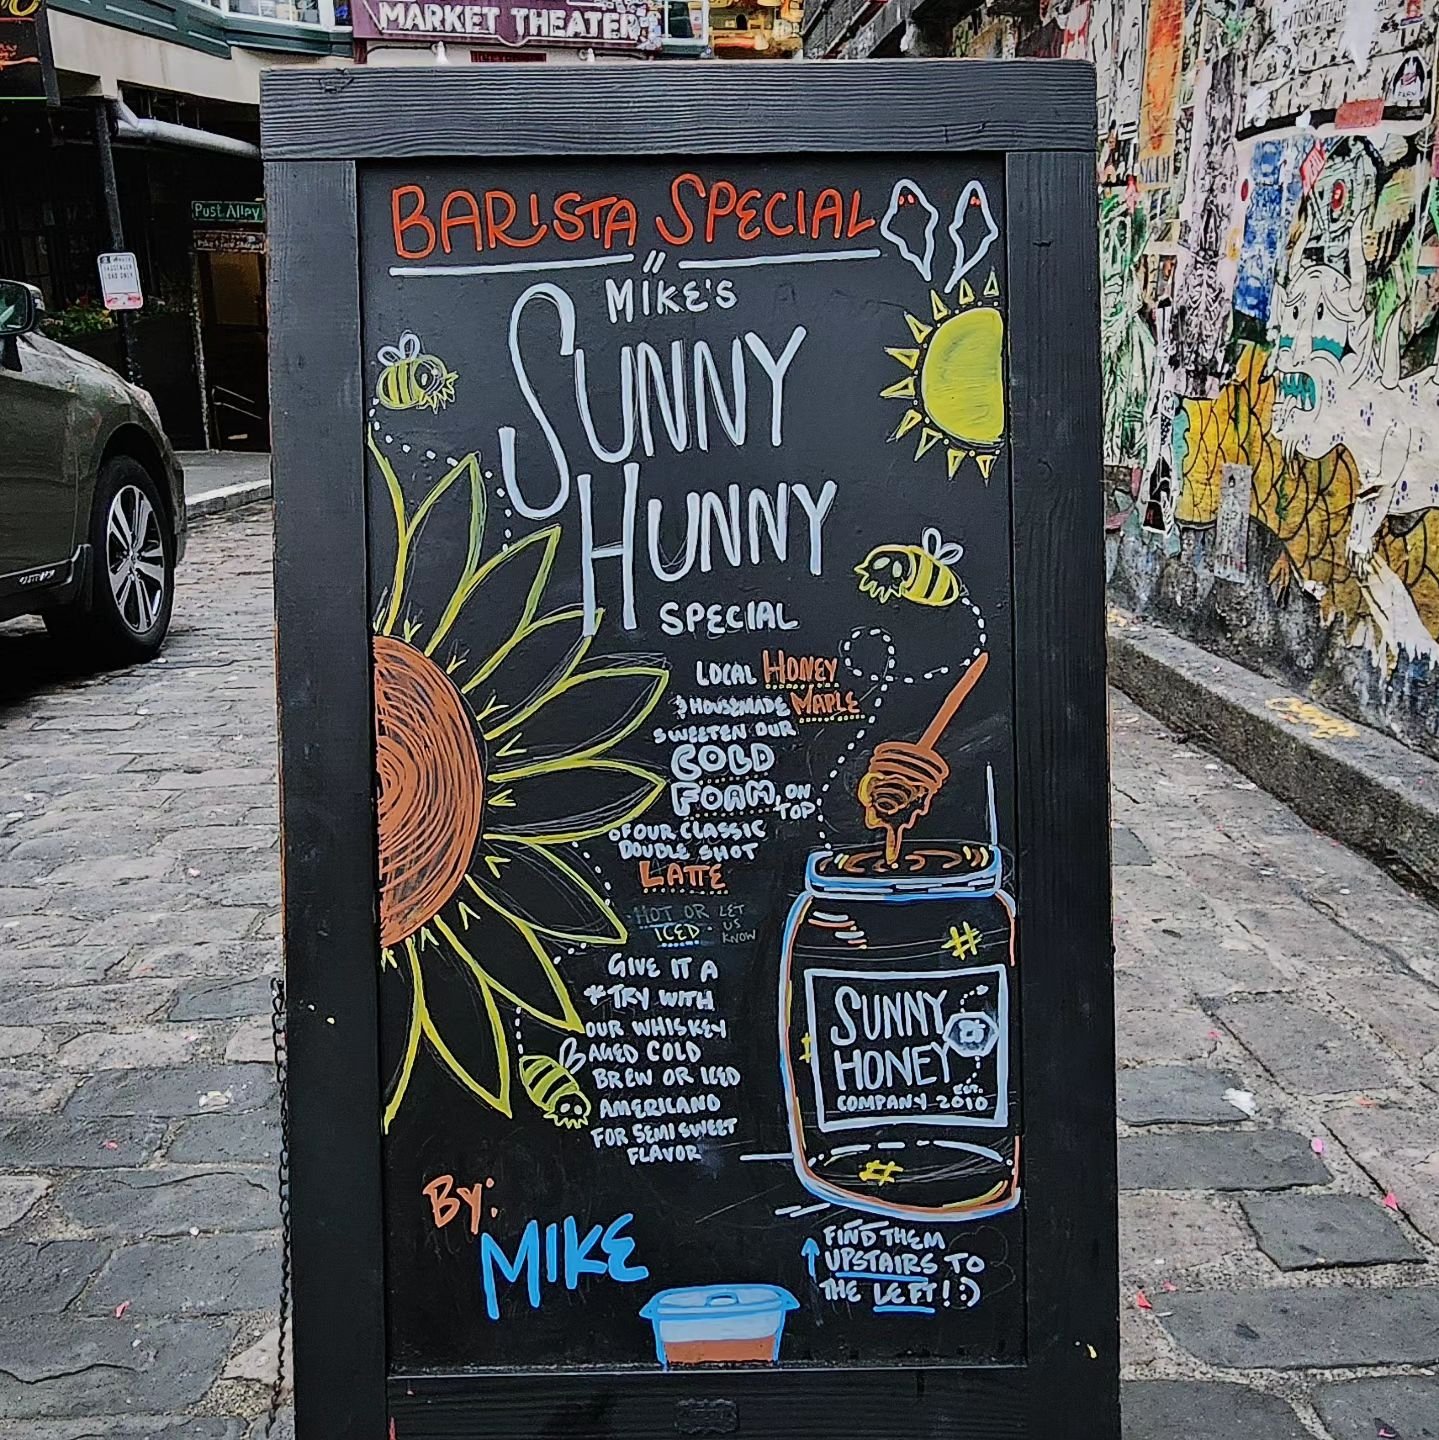 MARKET THEATER
Post Alley
BARISTA SPECIAL
MIKE'S
SUNNY
HUNNY
SPECIAL
LOCAL HONEY
& HOUSEMADE MAPLE
SWEETEN OUR
COLD
FOAM, ON
TOP
OF OUR CLASSIC
DOUBLE SHOT
LATTE
HOT OR
ICED.
LET
US
KNOW
GIVE IT A
*TRY WITH
OUR WHISKEY
AGED COLD
BREW OR ICED
AMERICANO
FOR SEMI SWEET
FLAVOR
SUNNY
HONEY
EST.
COMPANY 2010
By:
MIKE
FIND THEM
UPSTAIRS TO
THE LEFT! :)